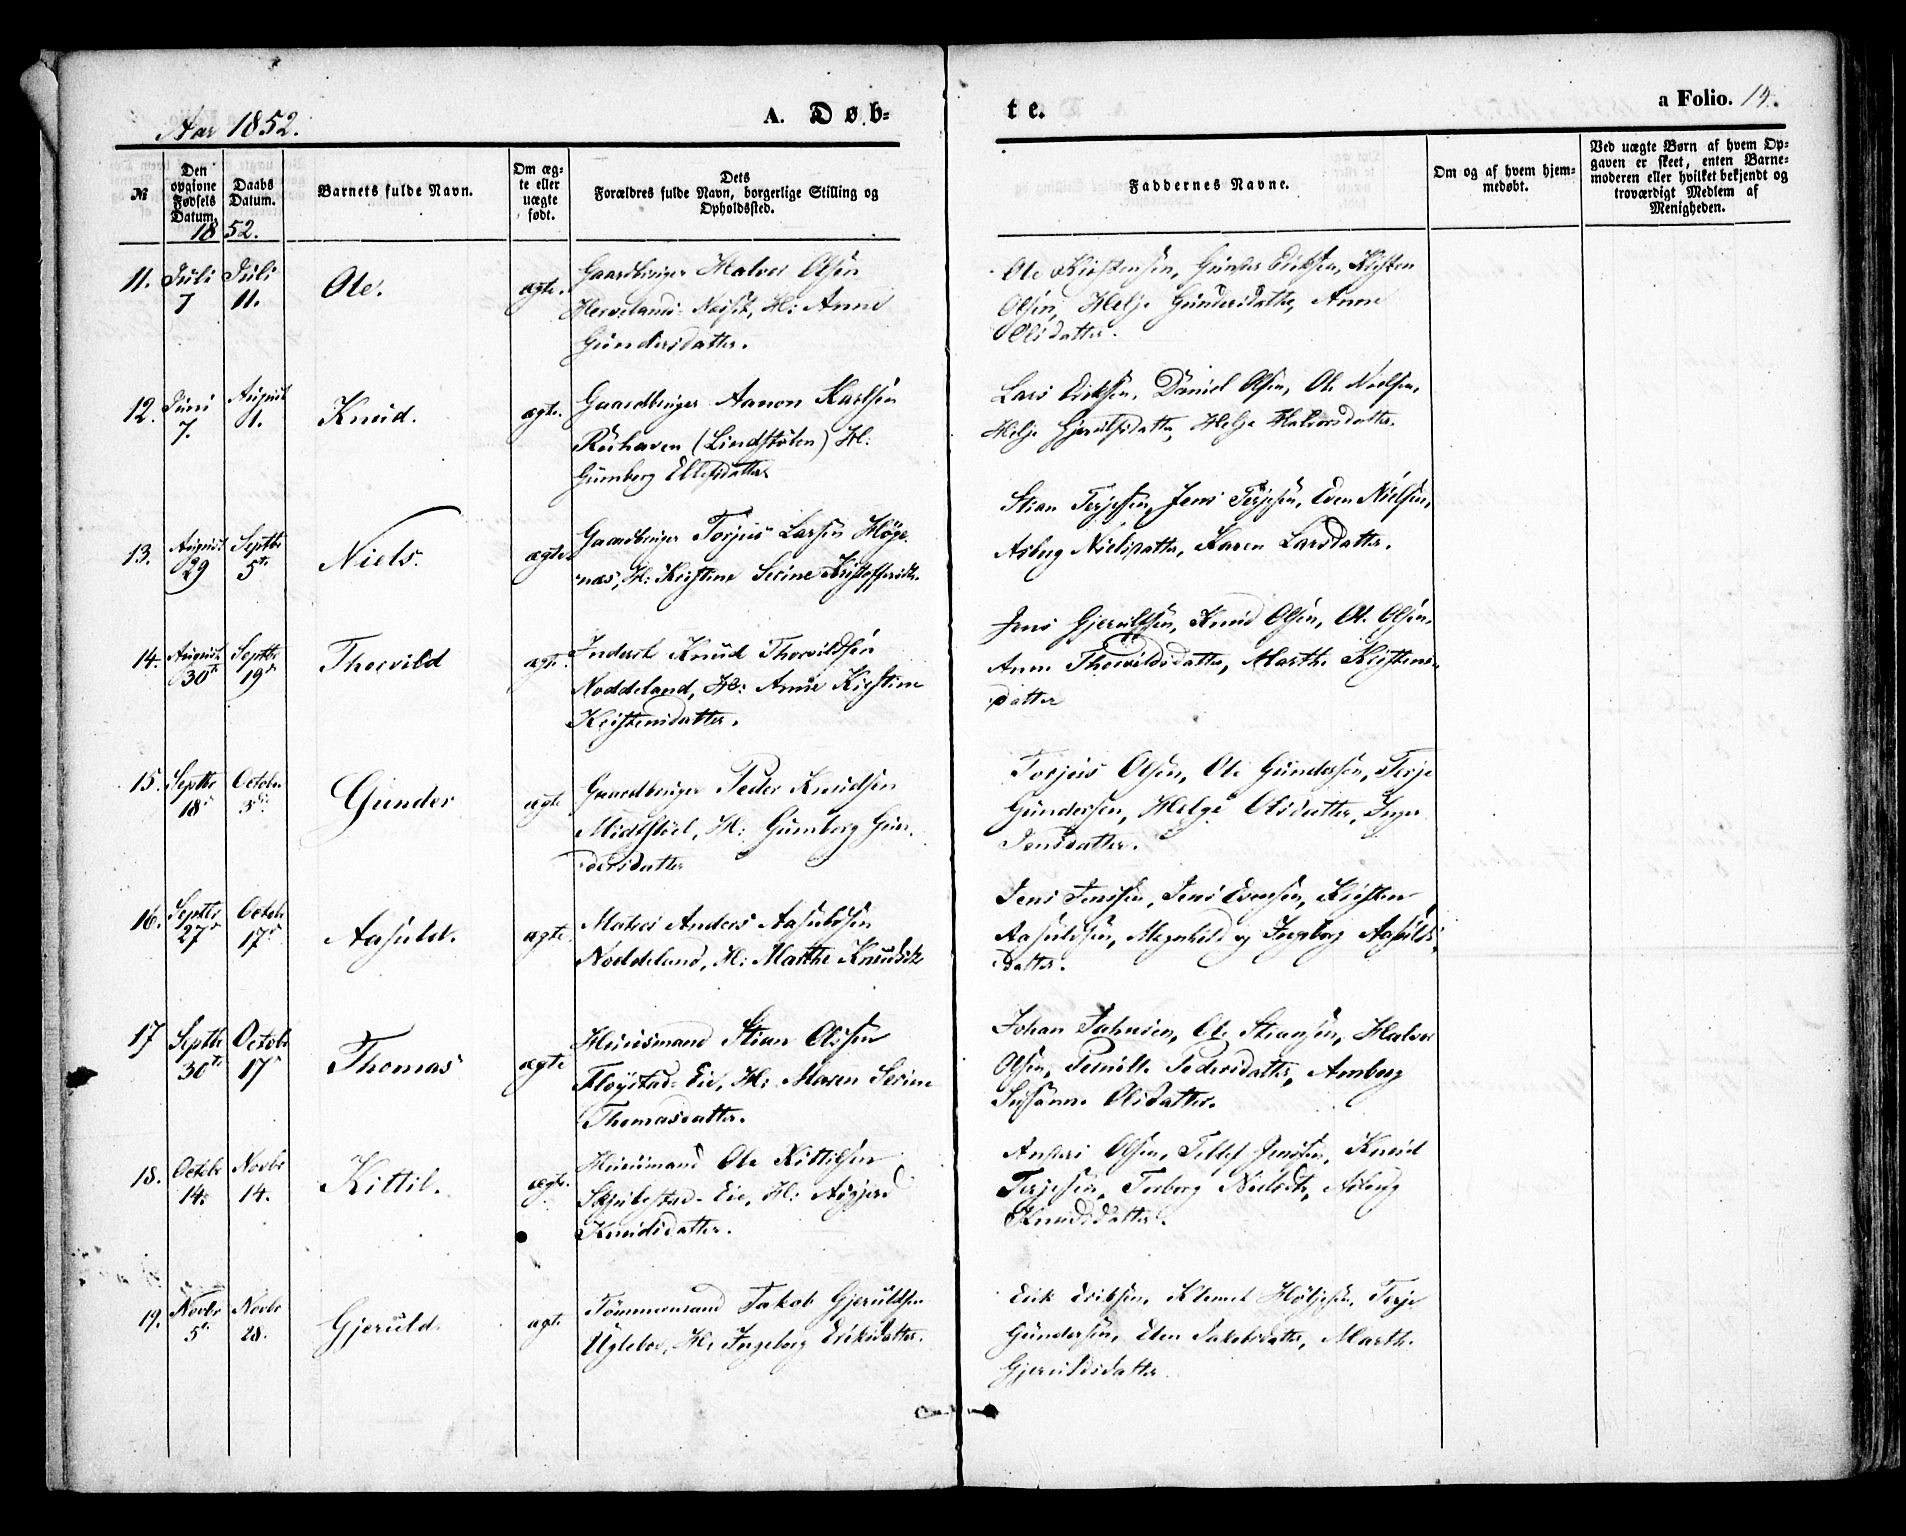 Aar 1852.
A. Døb-
te.
a Folio. 14.
№
Den opgivne Fødsels Datum.
Daabs Datum.
Barnets fulde Navn.
Om ægte eller uægte født.
Dets
Forældres fulde Navn, borgerlige Stilling og
Opholdssted.
Faddernes Navne.
Om og af hvem hjemmedøbt.
Ved uægte Børn af hvem Opgaven er skeet, enten Barnemoderen eller hvilket bekjendt og troværdigt Medlem af Menigheden.
1852.
11. Juli 7 Juli 11. Ole. ægte.
Gaardbruger Halvor Olsen
H: Anne
Gundersdatter.
Ole Kirstensen, Gunder Eriksen, Kristen
Olsen, Helje Gundersdatter, Anne
Olsdatter.
12. Juni 7. August 1. Knud. ægte.
Gaardbruger Aanon Karlsen
(Lindstølen) H:
Gumborg Ellefsdatter
Lars Eriksen, Daniel Olsen, Ole Nielsen,
Helje Gjerulfsdatter, Helje Halvorsdatter.
13. August 29 Septbr 5te Niels. ægte
Gaardbruger Torjus Larsen Høge-
næs, H: Kristine Serine Kristoffersdtr.
Stian Terjesen, Jens Terjesen, Even Nielsen,
Asberg Nielsdatter, Karen Larsdatter.
14. August 30te Septbr 19de Thorvild ægte.
Inderst Knud Thorvildsen
Noddeland, H: Anne Kirstine
Kristensdatter.
Jens Gjeruldsen, Knud Olsen, Ole Olsen,
Anne Thorvildsdatter, Marthe Kristens-
datter
15. Septbr 18de October 3die Gunder ægte
Gaardbruger Peder Knudsen
Midtstøl, H: Gumborg Gun-
dersdatter
Torjus Olsen, Ole Gundersen, Terje
Gundersen, Helge Olsdatter, Inger
Jensdatter.
16. Septbr 27de Octob 17de Aasuld. ægte.
Matros Anders Aasuldsen
Noddeland, H: Marthe Knudsdtr
Jens Jenssen, Jens Evensen, Kristen
Aasuldsen, Magnhild og Ingeborg Aasulds-
datter.
17 Septbr 30te Octobr 17de Thomas ægte
Huusmand Stian Olssen
Fløystad-Eie, H: Maren Serine
Thomasdatter.
Johan Johnsen, Ole Stiansen, Halvor
Olsen, Pernille Pedersdatter, Amberg
Susanne Olsdatter.
18. Octobr 14. Novbr 14. Kittil. ægte.
Huusmand Ole Kittilsen
Eie, H: Asgjerd
Knudsdatter.
Anders Olsen, Tellef Jensen, Knud
Terjesen, Torborg Nielsdtr, Asberg
Knudsdatter.
19. Novbr 5te Novbr 28. Gjeruld. ægte
Tømmermand Jakob Gjeruldsen
Uglebo, H: Ingeborg Eriksdatter.
Erik Eriksen, Klemet Høljesen, Terje
Gundersen, Elen Jakobsdatter, Marthe
Gjeruldsdatter